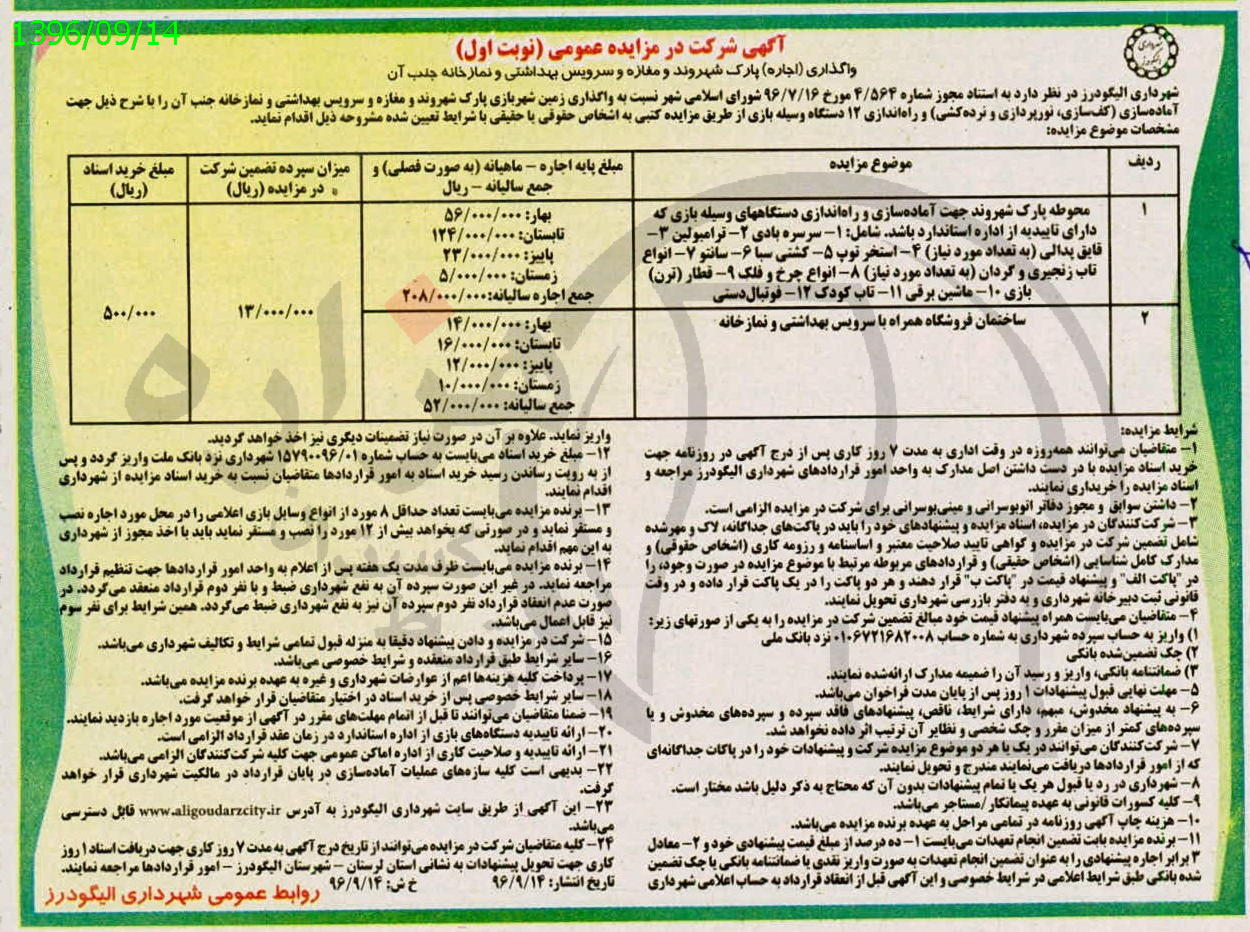 1396/09/14
آگهی شرکت در مزایده عمومی (نوبت اول)
واگذاری (اجاره) پارک شهروند و مغازه و سرویس بهداشتی و نمازخانه جنب آن
شهرداری الیگودرز در نظر دارد به استناد مجوز شماره ۴/۵۶۴ مورخ ۹۶/۷/۱۶ شورای اسلامی شهر نسبت به واگذاری زمین شهربازی پارک شهروند و مغازه و سرویس بهداشتی و نمازخانه جنب آن را با شرح ذیل جهت
آماده‌سازی (کف‌سازی، نورپردازی و نرده‌کشی) و راه‌اندازی ۱۲ دستگاه وسیله بازی از طریق مزایده کتبی به اشخاص حقوقی یا حقیقی با شرایط تعیین شده مشروحه ذیل اقدام نماید.
مشخصات موضوع مزایده:
ردیف
موضوع مزایده
مبلغ پایه اجاره – ماهیانه (به صورت فصلی) و
جمع سالیانه – ریال
میزان سپرده تضمین شرکت
در مزایده (ریال)
مبلغ خرید اسناد
(ریال)
۱
محوطه پارک شهروند جهت آماده‌سازی و راه‌اندازی دستگاههای وسیله بازی که
دارای تاییدیه از اداره استاندارد باشد. شامل: ۱– سرسره بادی ۲– ترامپولین ۳–
قایق پدالی (به تعداد مورد نیاز) ۴– استخر توپ ۵– کشتی سبا ۶– سانتو ۷– انواع
تاب زنجیری و گردان (به تعداد مورد نیاز) ۸– انواع چرخ و فلک ۹– قطار (ترن)
بازی ۱۰– ماشین برقی ۱۱– تاب کودک ۱۲– فوتبال‌دستی
بهار: ۵۶/۰۰۰/۰۰۰
تابستان: ۱۲۴/۰۰۰/۰۰۰
پاییز: ۲۳/۰۰۰/۰۰۰
زمستان: ۵/۰۰۰/۰۰۰
جمع اجاره سالیانه: ۲۰۸/۰۰۰/۰۰۰
۱۳/۰۰۰/۰۰۰
۵۰۰/۰۰۰
۲
ساختمان فروشگاه همراه با سرویس بهداشتی و نمازخانه
بهار: ۱۴/۰۰۰/۰۰۰
تابستان: ۱۶/۰۰۰/۰۰۰
پاییز: ۱۲/۰۰۰/۰۰۰
زمستان: ۱۰/۰۰۰/۰۰۰
جمع سالیانه: ۵۲/۰۰۰/۰۰۰
شرایط مزایده:
۱– متقاضیان می‌توانند همه‌روزه در وقت اداری به مدت ۷ روز کاری پس از درج آگهی در روزنامه جهت
خرید اسناد مزایده با در دست داشتن اصل مدارک به واحد امور قراردادهای شهرداری الیگودرز مراجعه و
اسناد مزایده را خریداری نمایند.
۲– داشتن سوابق و مجوز دفاتر اتوبوسرانی و مینی‌بوسرانی برای شرکت در مزایده الزامی است.
۳– شرکت‌کنندگان در مزایده، اسناد مزایده و پیشنهادهای خود را باید در پاکت‌های جداگانه، لاک و مهرشده
شامل تضمین شرکت در مزایده و گواهی تایید صلاحیت معتبر و اساسنامه و رزومه کاری (اشخاص حقوقی) و
مدارک کامل شناسایی (اشخاص حقیقی) و قراردادهای مربوطه مرتبط با موضوع مزایده در صورت وجود، را
در "پاکت الف" و پیشنهاد قیمت در "پاکت ب" قرار دهند و هر دو پاکت را در یک پاکت قرار داده و در وقت
قانونی ثبت دبیرخانه شهرداری و به دفتر بازرسی شهرداری تحویل نمایند.
۴– متقاضیان می‌بایست همراه پیشنهاد قیمت خود مبالغ تضمین شرکت در مزایده را به یکی از صورتهای زیر:
۱) واریز به حساب سپرده شهرداری به شماره حساب ۰۱۰۶۷۲۱۶۸۲۰۰۸ نزد بانک ملی
۲) چک تضمین‌شده بانکی
۳) ضمانتنامه بانکی، واریز و رسید آن را ضمیمه مدارک ارائه‌شده نمایند.
۵– مهلت نهایی قبول پیشنهادات ۱ روز پس از پایان مدت فراخوان می‌باشد.
۶– به پیشنهاد مخدوش، مبهم، دارای شرایط، ناقص، پیشنهادهای فاقد سپرده و سپرده‌های مخدوش و یا
سپرده‌های کمتر از میزان مقرر و چک شخصی و نظایر آن ترتیب اثر داده نخواهد شد.
۷– شرکت‌کنندگان می‌توانند در یک یا هر دو موضوع مزایده شرکت و پیشنهادات خود را در پاکات جداگانه‌ای
که از امور قراردادها دریافت می‌نمایند مندرج و تحویل نمایند.
۸– شهرداری در رد یا قبول هر یک یا تمام پیشنهادات بدون آن که محتاج به ذکر دلیل باشد مختار است.
۹– کلیه کسورات قانونی به عهده پیمانکار/مستاجر می‌باشد.
۱۰– هزینه چاپ آگهی روزنامه در تمامی مراحل به عهده برنده مزایده می‌باشد.
۱۱– برنده مزایده بابت تضمین انجام تعهدات می‌بایست ۱– ده درصد از مبلغ قیمت پیشنهادی خود و ۲– معادل
۳ برابر اجاره پیشنهادی را به عنوان تضمین انجام تعهدات به صورت واریز نقدی یا ضمانتنامه بانکی یا چک تضمین
شده بانکی طبق شرایط اعلامی در شرایط خصوصی و این آگهی قبل از انعقاد قرارداد به حساب اعلامی شهرداری
واریز نماید. علاوه بر آن در صورت نیاز تضمینات دیگری نیز اخذ خواهد گردید.
۱۲– مبلغ خرید اسناد می‌بایست به حساب شماره ۱۵۷۹۰۰۹۶/۰۱ شهرداری نزد بانک ملت واریز گردد و پس
از به رویت رساندن رسید خرید اسناد به امور قراردادها متقاضیان نسبت به خرید اسناد مزایده از شهرداری
اقدام نمایند.
۱۳– برنده مزایده می‌بایست تعداد حداقل ۸ مورد از انواع وسایل بازی اعلامی را در محل مورد اجاره نصب
و مستقر نماید و در صورتی که بخواهد بیش از ۱۲ مورد را نصب و مستقر نماید باید با اخذ مجوز از شهرداری
به این مهم اقدام نماید.
۱۴– برنده مزایده می‌بایست ظرف مدت یک هفته پس از اعلام به واحد امور قراردادها جهت تنظیم قرارداد
مراجعه نماید. در غیر این صورت سپرده آن به نفع شهرداری ضبط و با نفر دوم قرارداد منعقد می‌گردد. در
صورت عدم انعقاد قرارداد نفر دوم سپرده آن نیز به نفع شهرداری ضبط می‌گردد. همین شرایط برای نفر سوم
نیز قابل اعمال می‌باشد.
۱۵– شرکت در مزایده و دادن پیشنهاد دقیقا به منزله قبول تمامی شرایط و تکالیف شهرداری می‌باشد.
۱۶– سایر شرایط طبق قرارداد منعقده و شرایط خصوصی می‌باشد.
۱۷– پرداخت کلیه هزینه‌ها اعم از عوارضات شهرداری و غیره به عهده برنده مزایده می‌باشد.
۱۸– سایر شرایط خصوصی پس از خرید اسناد در اختیار متقاضیان قرار خواهد گرفت.
۱۹– ضمنا متقاضیان می‌توانند تا قبل از اتمام مهلت‌های مقرر در آگهی از موقعیت مورد اجاره بازدید نمایند.
۲۰– ارائه تاییدیه دستگاه‌های بازی از اداره استاندارد در زمان عقد قرارداد الزامی است.
۲۱– ارائه تاییدیه و صلاحیت کاری از اداره اماکن عمومی جهت کلیه شرکت‌کنندگان الزامی می‌باشد.
۲۲– بدیهی است کلیه سازه‌های عملیات آماده‌سازی در پایان قرارداد در مالکیت شهرداری قرار خواهد
گرفت.
۲۳– این آگهی از طریق سایت شهرداری الیگودرز به آدرس www.aligoudarzcity.ir قابل دسترسی
می‌باشد.
۲۴– کلیه متقاضیان شرکت در مزایده می‌توانند از تاریخ درج آگهی به مدت ۷ روز کاری جهت دریافت اسناد ۱ روز
کاری جهت تحویل پیشنهادات به نشانی استان لرستان – شهرستان الیگودرز – امور قراردادها مراجعه نمایند.
تاریخ انتشار: ۹۶/۹/۱۴ خ ش: ۹۶/۹/۱۴
روابط عمومی شهرداری الیگودرز